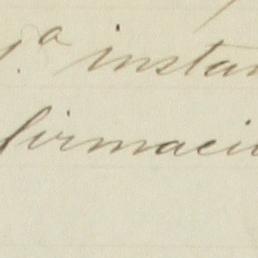 1.ª instan
firmaci